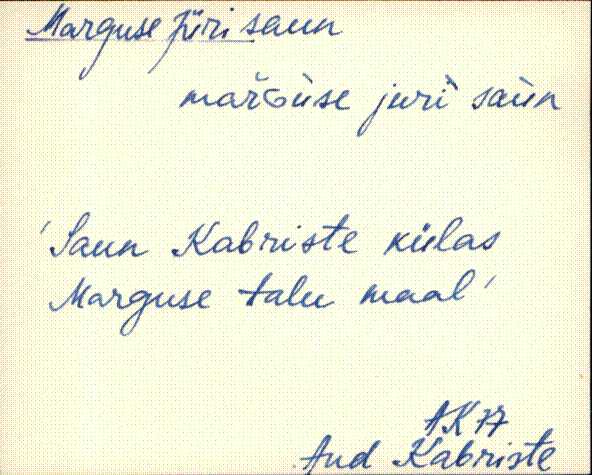 Marguse Jüri saun
marGùse juri saùn
'Saun Kabriste külas
Marguse talu maal'
AK 77
And Kabriste